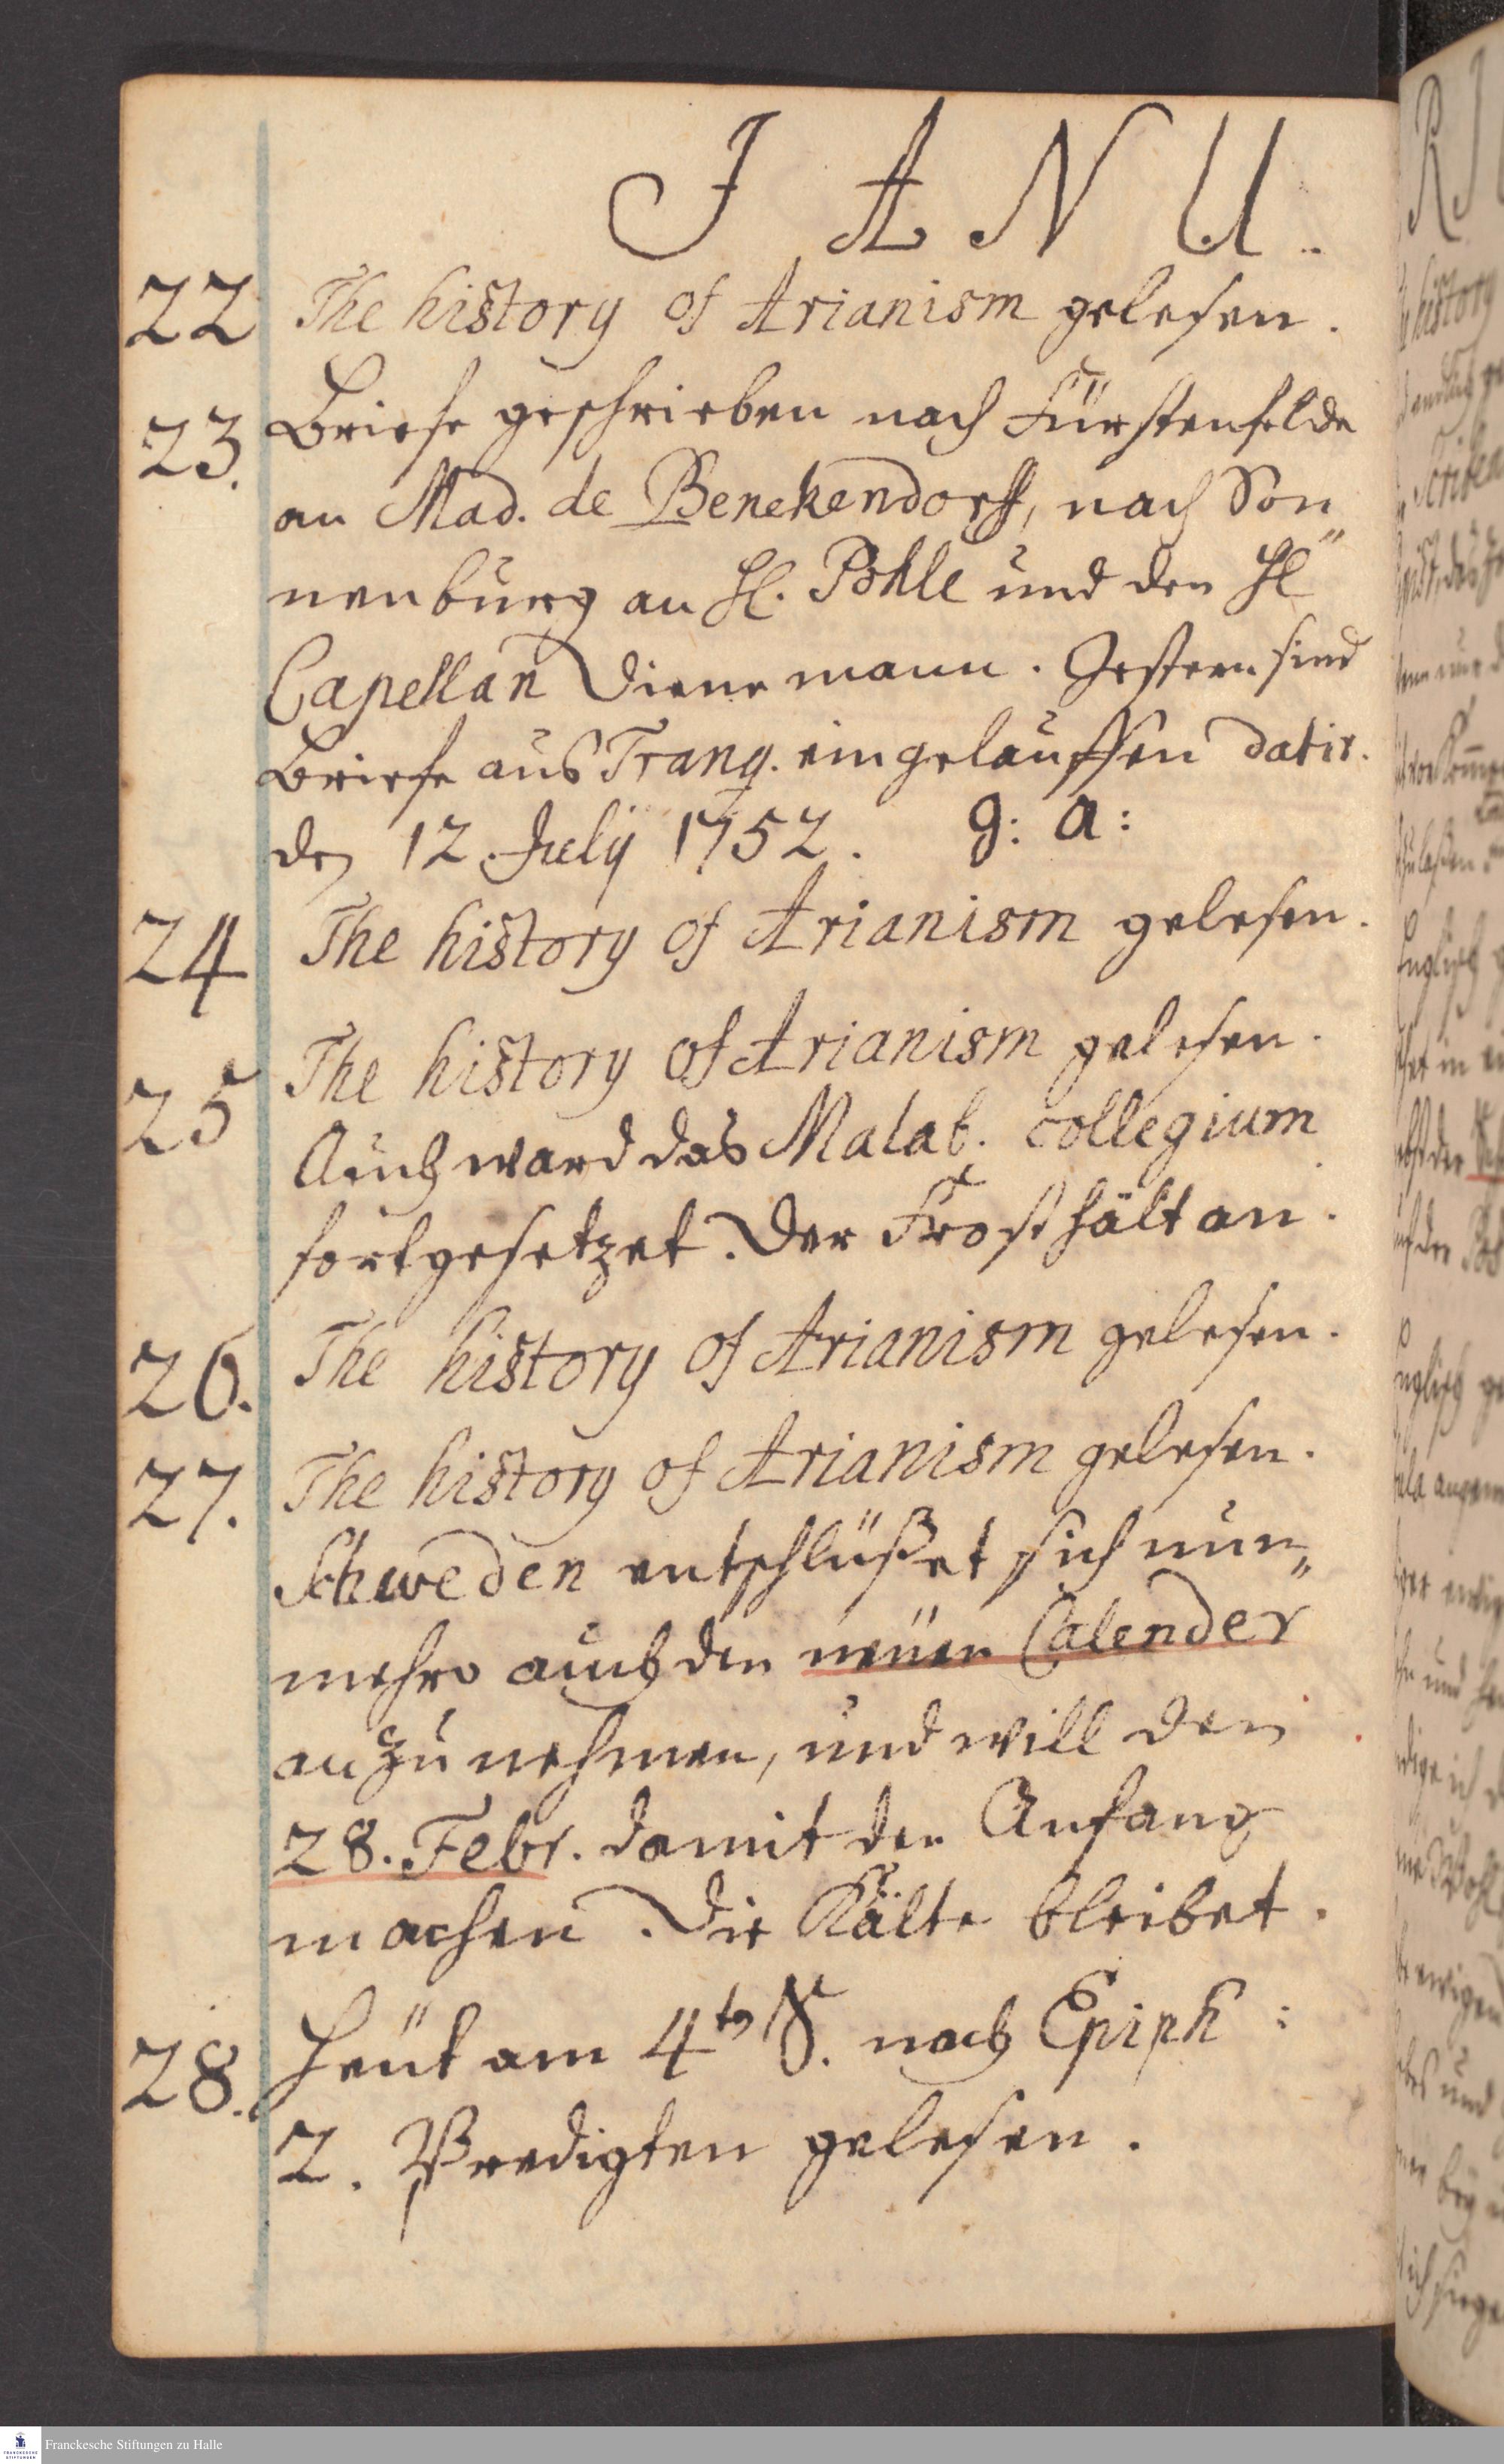 J A N U.
22 The history of Arianism gelesen.
23. Briefe geschrieben nach Fürstenfelde
an Mad. de Benekendorff, nach Son„
nenburg an H. Pohle und den H
Capellan Dienemann. Gestern sind
Briefe aus Tranq. eingelauffen datir.
den 12. July 1752. g: a:
24 The history of Arianism gelesen.
25 The history of Arianism gelesen.
Auch ward das Malab. collegium
fortgesetzet. Der Frost hält an.
26. The history of Arianism gelesen.
27. The history of Arianism gelesen.
Schweden entschlüßet sich nun„
mehro auch den neüen Calender
anzunehmen, und will den
28. Febr. damit den Anfang
machen. Die Kälte bleibet.
28. Heüt am 4ten S. nach Epiph:
2. Predigten gelesen.
Franckesche Stiftungen zu Halle